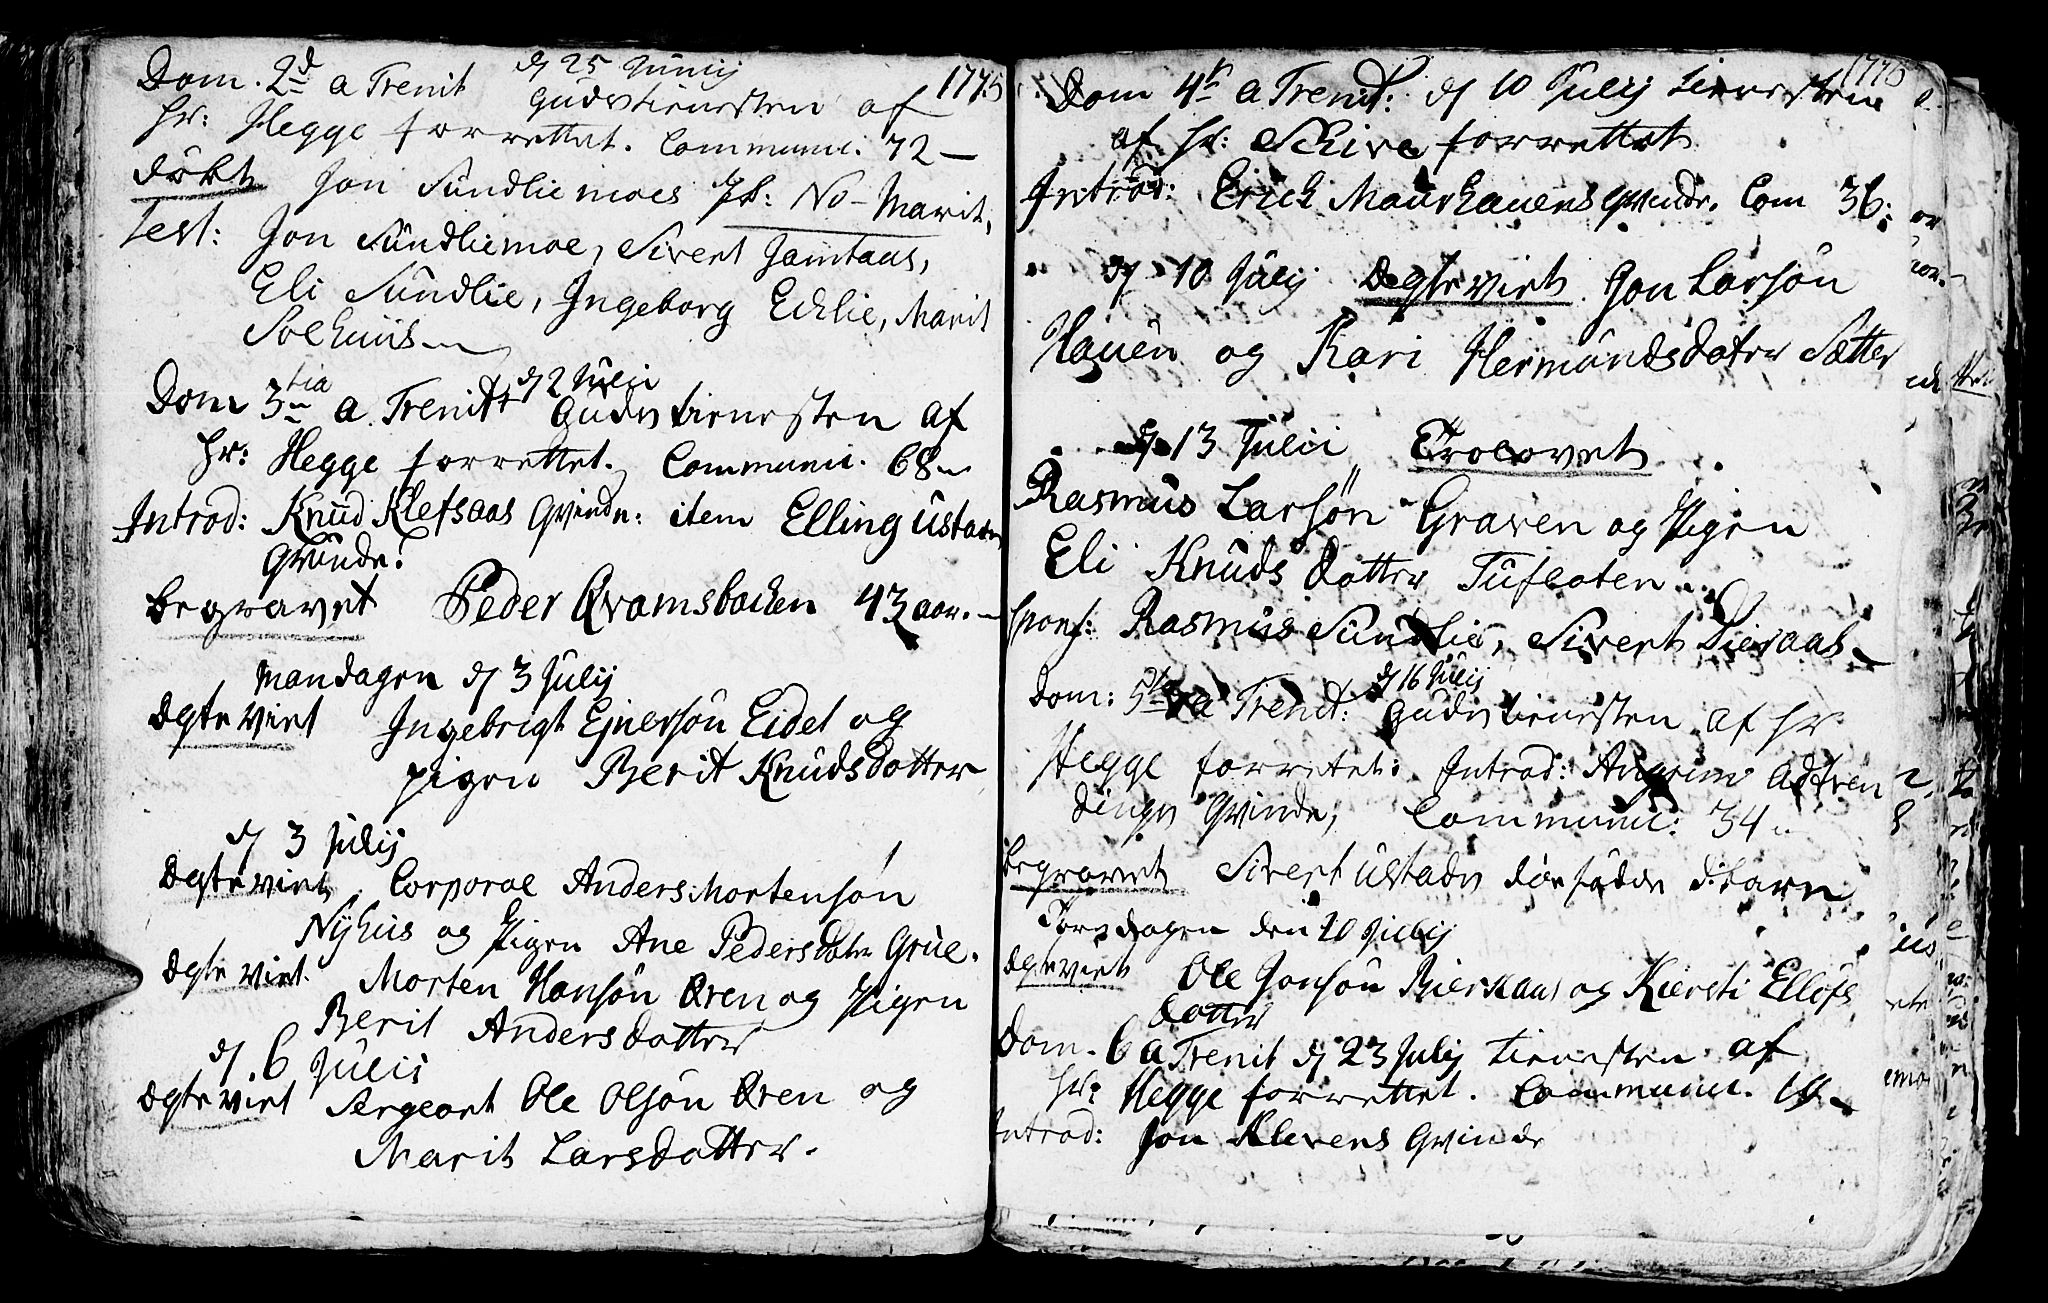 Dom. 2d a Trenit d 25 Junij 1775
Gudstienesten af
Hr: Hegge forrettet. Communi: 72 —
døbt Jon Sundliemoes No - Marit,
Test: Jon Sundliemoe, Sivert Jamtaas,
Eli Sundlie, Ingeborg Echlie, Marit
Solhuus
Dom 3tia a. Trenit: d 2 Julii Gudstienesten af
Hr: Hegge forrettet. Communi. 68
Introd: Knud Klefsaas Qvinde: item Elling Ustads
Qvinde.
begravet Peder Qvamsbachen 43 aar.
Mandagen d 3 Julij
Egteviet Ingebrigt Ejnersøn Eidet og
pigen Berit Knudsdotter
d 3 Julij
Egteviet Corporal Anders Mortensøn
Nyhus og Pigen Ane Pedersdotr Grue.
Egteviet Morten Hansøn Øren og Pigen
Berit Andersdotter
d. 6 Julii
Egteviet Sergeant Ole Olsøn Øren og
Marit Larsdotter.
Dom 4t a Trenit: d 10 Julij tienesten
af Hr: Schive forrettet
Introd: Erich Maurhauens Qvinde. Com 36:
d 10 Julij Egteviet Jon Larsøn
Hauen og Kari Hermundsdotter Sætter
d 13 Julii Trolovet
Rasmus Larsøn Graven og Pigen
Eli Knudsdotter Tufloten
spons: Rasmus Sundlie, Sivert Lieraas
Dom: 5ta a Trenit: d 16 Julij Gudstienesten af Hr
Hegge forretet: Introd:
dings Qvinde, Communi: 34
begravet Sivert Ustads dødfødde d:barn
Torsdagen den 20 Julij
Egteviet Ole Jonsøn Bierkaas og Kiersti Ellofs
dotter
Dom. 6 a Trenit d 23 Julij tienesten af
Hr: Hegge forrettet. Communi. 19
Introd: Jon Klevens Qvinde